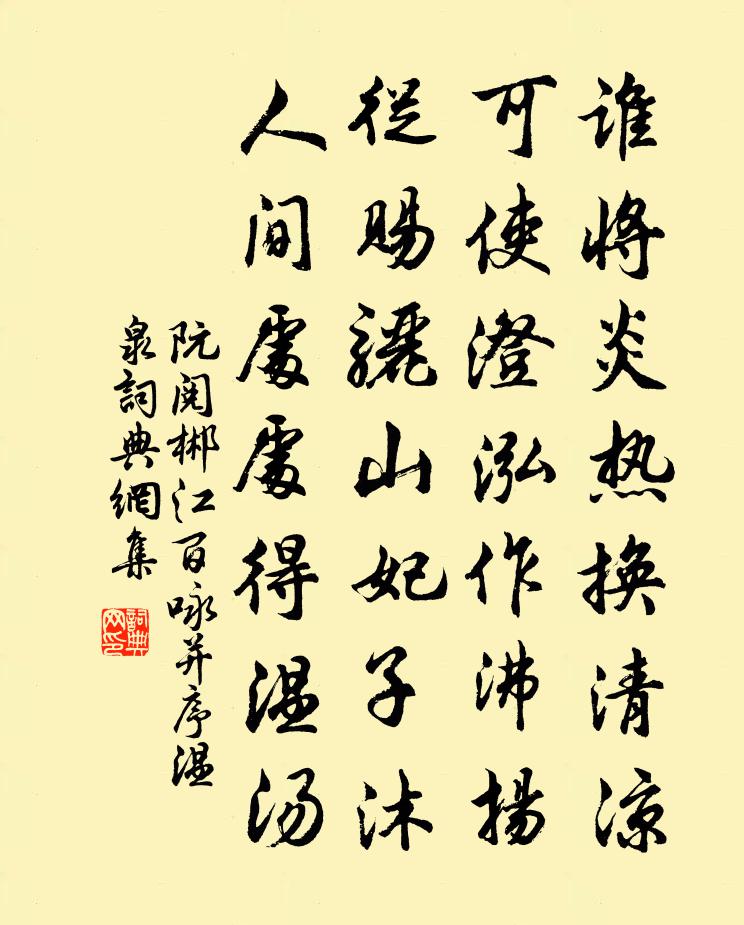 谁将炎热换清凉
可使澄泓作沸扬
从赐骊山妃子沐
人间处处得温汤
阮阅郴江百咏并序温
泉词典网集
词典网印